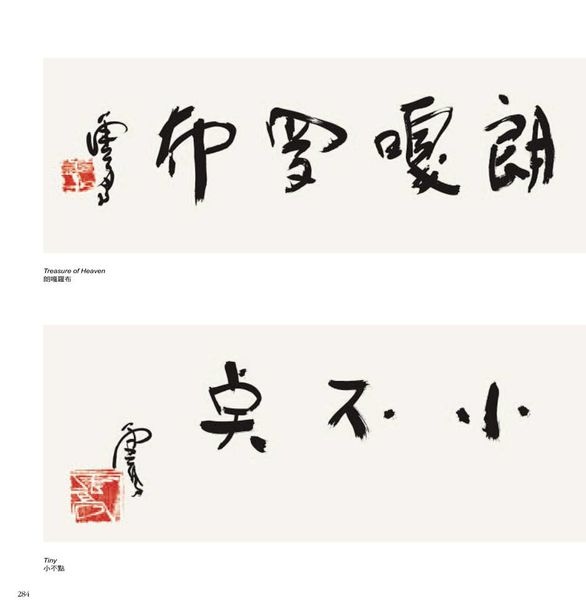 朗嘎罗布
Treasure of Heaven
朗嘎羅布
小不奌
Tiny
小不點
284